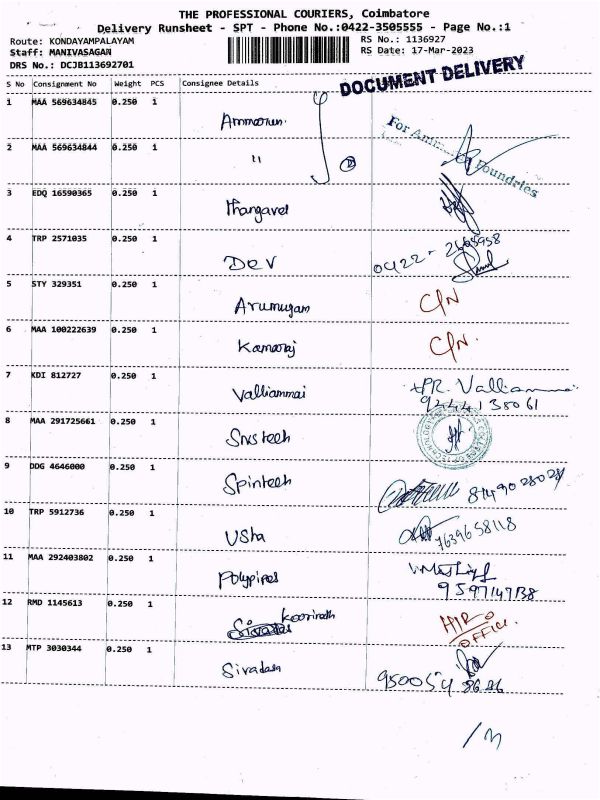 THE PROFESSIONAL COURIERS, Coimbatore
Delivery Runsheet - SPT - Phone No.:0422-3505555 - Page No.:1
Route: KONDAYAMPALAYAM RS No.: 1136927
Staff: MANIVASAGAN RS Date: 17-Mar-2023
DRS No.: DCJB113692701 DOCUMENT DELIVERY
S No Consignment No Weight PCS Consignee Details
1 MAA 569634845 0.250 1
2 MAA 569634844 0.250 1 "
For Foundries
3 EDQ 16590365 0.250 1 Thangavel
4 TRP 2571035 0.250 1 DEV 0422-2665958
5 STY 329351 0.250 1 Arumugam C/N
6 MAA 100222639 0.250 1 Kamaraj C/N.
7 KDI 812727 0.250 1 Valliammai PR. Valliammai
9444138061
8 MAA 291725661 0.250 1 Snsteech
9 DDG 4646000 0.250 1 Spinteeh 8149028028
10 TRP 5912736 0.250 1 Usha 7639658118
11 MAA 292403802 0.250 1 Polypipes
9597147138
12 RMD 1145613 0.250 1
OFFICE.
13 MTP 3030344 0.250 1 Sivadasn